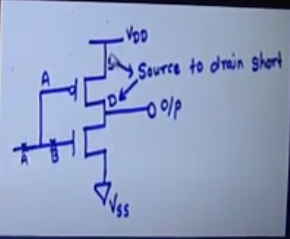 VDD
S
A
Source to drain short
D
O/P
A
B
VSS